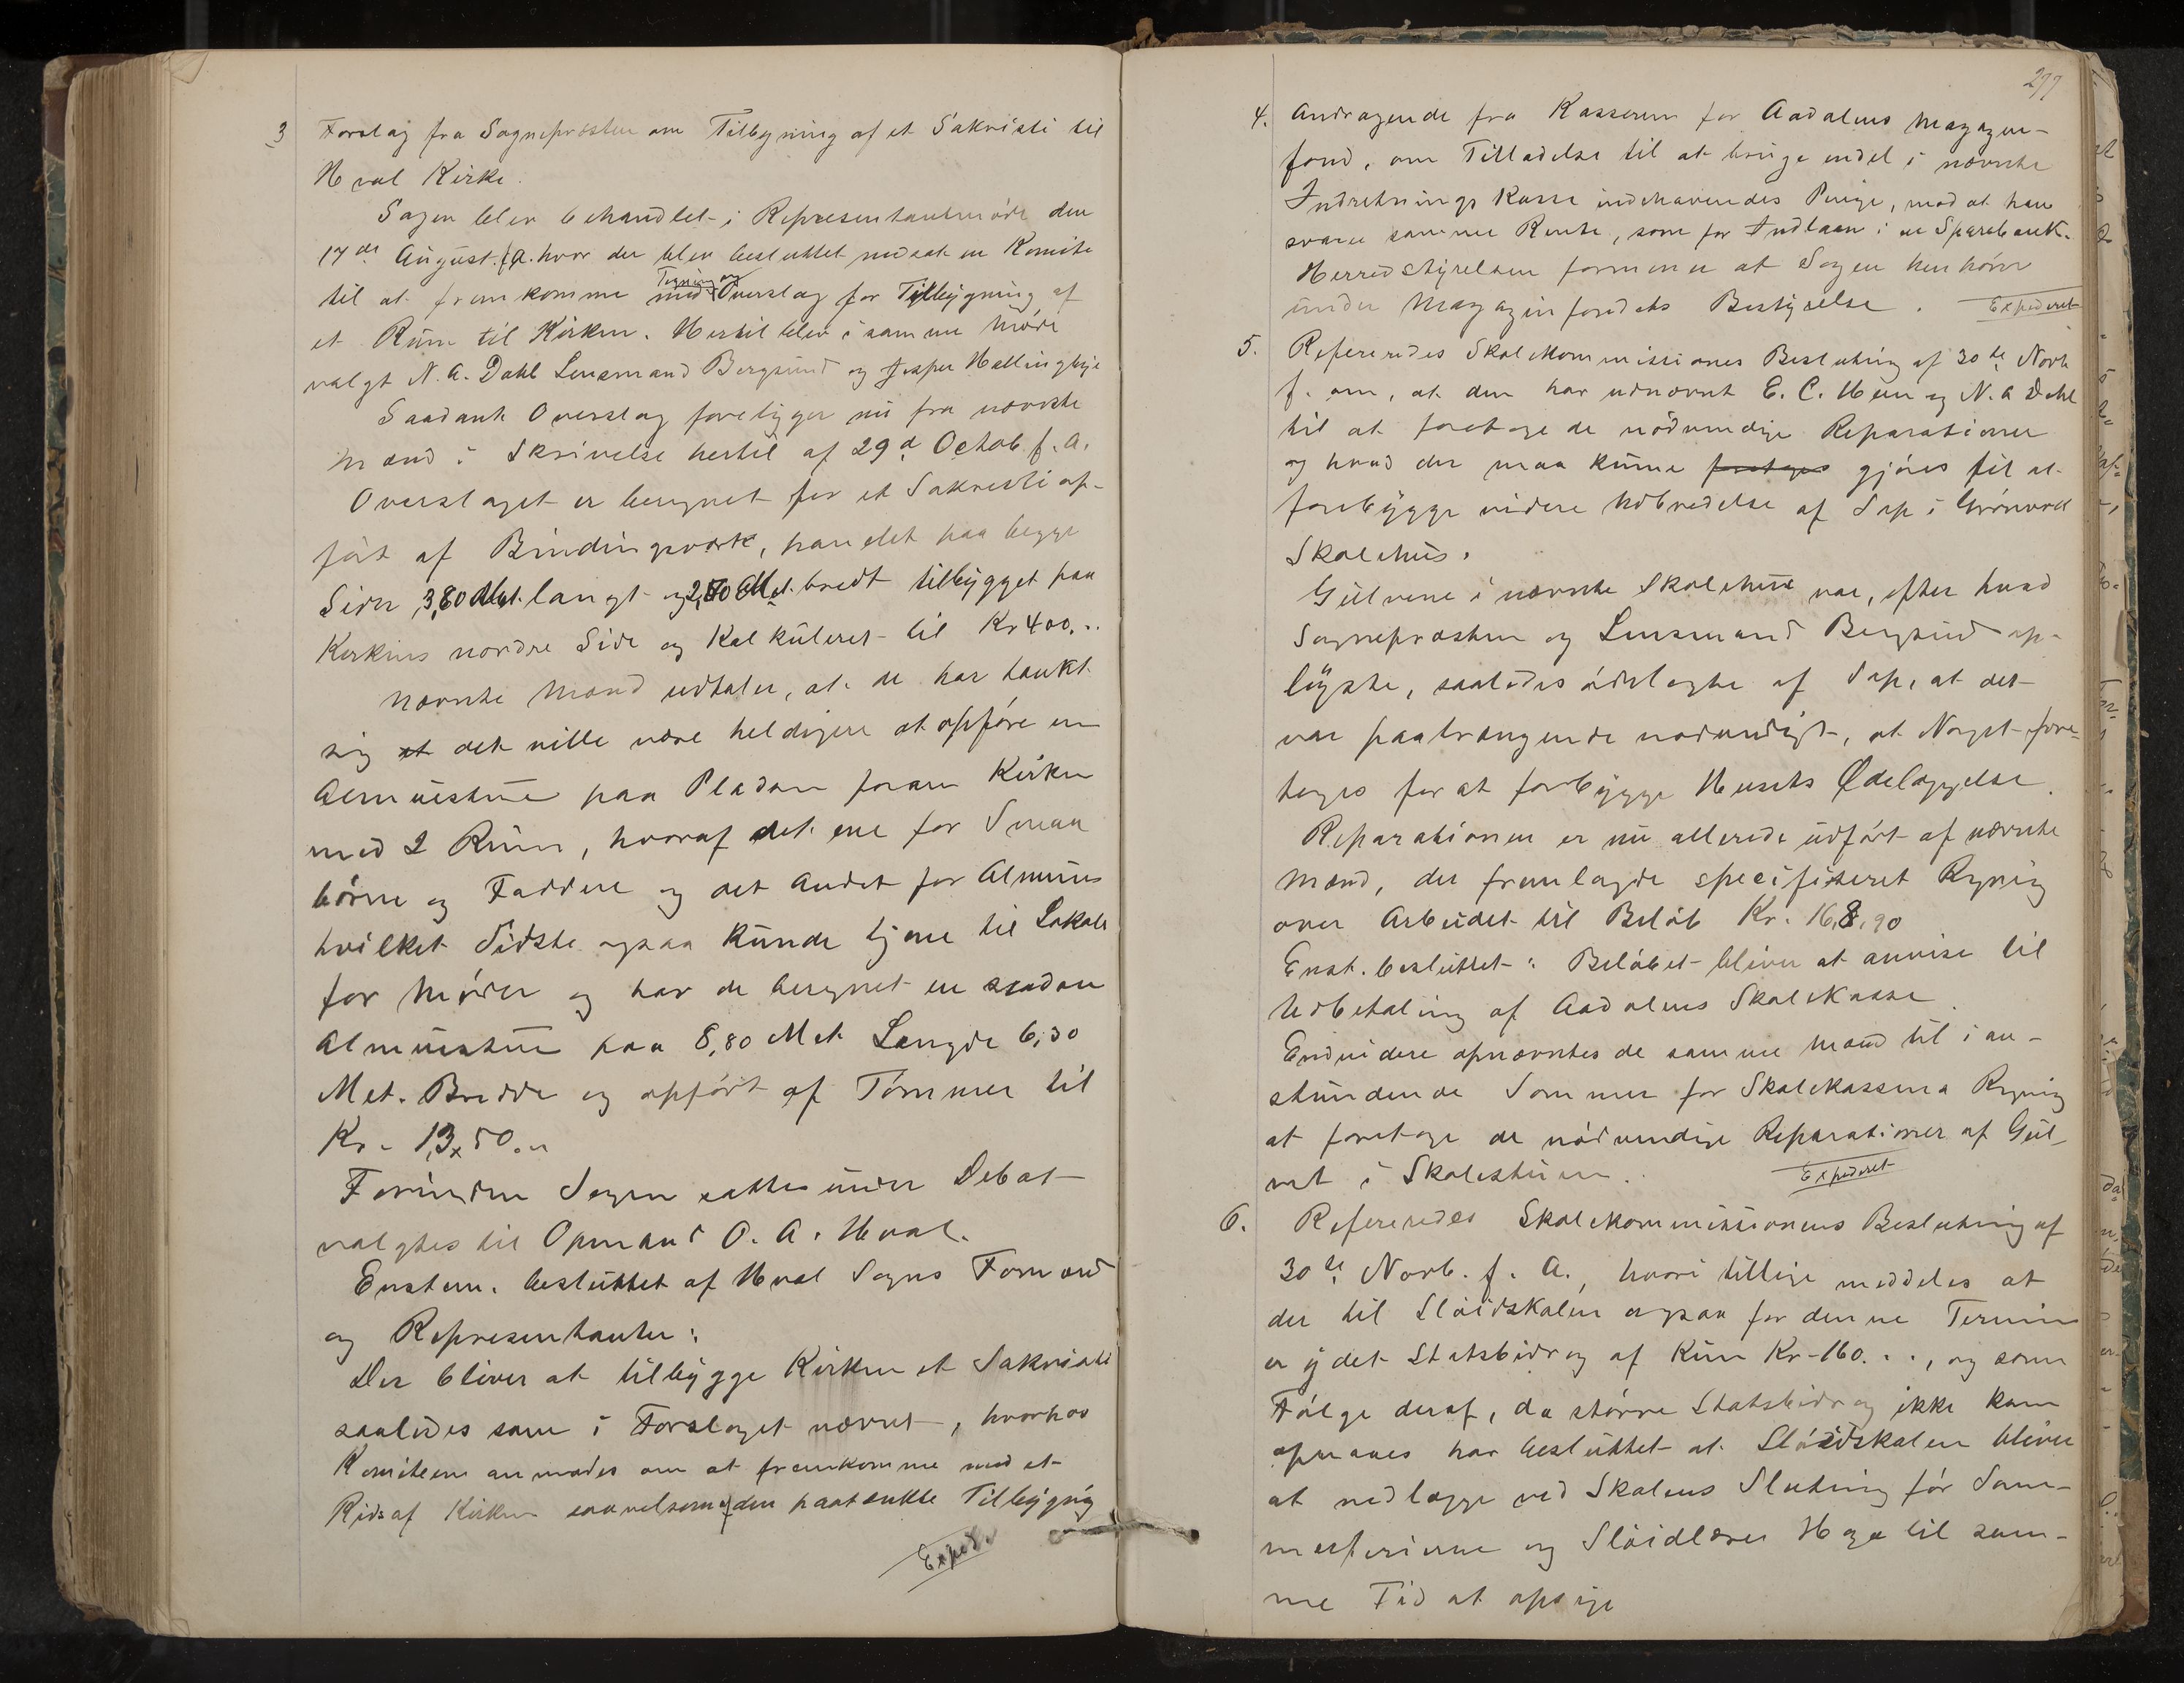 3 Forslag fra Sognepræsten om Tilbygning af et Sakristi til
Hval Kirke.
Sagen blev behandlet i Representantmøde den
17de August f. A. hvor der blev besluttet nedsat en Komite
til at fremkomme med Tegning og Overslag for Tilbygning af
et Rum til Kirken. Hertil blev i samme Møde
valgt N. A. Dahl Lensmand Bergsund og Jesper Hallingbye
Saadant Overslag foreligger nu fra nævnte
Mænd i Skrivelse hertil af 29d Octob. f. A.
Overslaget er beregnet for et Sakristi op-
ført af Bindingsværk, panelet paa begge
Sider 3,80 Met. langt og Met. bredt tilbygget paa
Kirkens nordre Side og Kalkuleret til Kr 400...
Nævnte Mænd udtaler, at de har tænkt
sig at det ville være heldigere at opføre en
Almuestue paa Pladsen foran Kirken
med 2 Rum, hvoraf det ene for Smaa
børn og Faddere og det Andet for Almuen
hvilket Sidste ogsaa Kunde tjene til Lokale
for Møder og har de beregnet en saadan
Almuestue paa 8,80 Met Længde 6,30
Met. Bredde og opført af Tømmer til
Kr. 1350..
Forinden Sagen sattes under Debat
valgtes til Opmand O. A. Hval.
Enstem. besluttet af Hval Sogns Formænd
og Representanter:
Der bliver at tilbygge Kirken et Sakristi
saaledes som i Forslaget nævnt, hvorhos
Komiteen anmodes om at fremkomme med et
Rids af Kirken saavelsom af den paatænkte Tilbygnig
Exped.
297
4. Andragende fra Kassereren for Aadalens Magazin-
fond, om Tilladelse til at bruge endel i nævnte
Indretnings Kasse indehavendes Penge, mod at han
svarer samme Rente, som for Indlaan i en Sparebank.
Herredstyrelsen formener at Sagen henhører
under Magazinfondets Bestyrelse. Expederet
5. Refereredes Skolekommissionens Beslutnig af 30te Novb
f. om, at den har udnævnt E. C. Hem og N. A Dahl
til at foretage de nødvendige Reparationer
og hvad der maa kunne foretages gjøres til at
forebygge videre Udbredelse af Sop i Grønvold
Skolehus.
Gulvene i nævnte Skolehus var, efter hvad
Sognepræsten og Lensmand Bergsund op-
lyste, saaledes ødelagte af Sop, at det
var paatrængende nødvendigt, at Noget fore-
toges for at forbygge Husets Ødelæggelse.
Reparationen er nu allerede udført af nævnte
Mænd, der fremlagde specifiseret Regnig
over Arbeidet til Beløb Kr. 168,90
Enst. besluttet: Beløbet bliver at anvise til
Udbetaling af Aadalens Skolekasse.
Endvidere opnævntes de samme Mænd til i an-
stundende Sommer for Skolekassens Regnig
at foretage de nødvendige Reparationer af Gul-
vet i Skolestuen. Expederet
6. Refereredes Skolekommissionens Beslutning af
30te Novb. f. A., hvori tillige meddeles at
der til Sløidskolen ogsaa for denne Termin
er ydet Statsbidrag af Kun Kr. 160..., og som
Følge deraf, da større Statsbidrag ikke kan
opnaaes har besluttet at Sløidskolen bliver
at nedlægge ved Skolens Slutning før Som-
merferierne og Sløidlærer Haga til sam-
me Tid at opsige